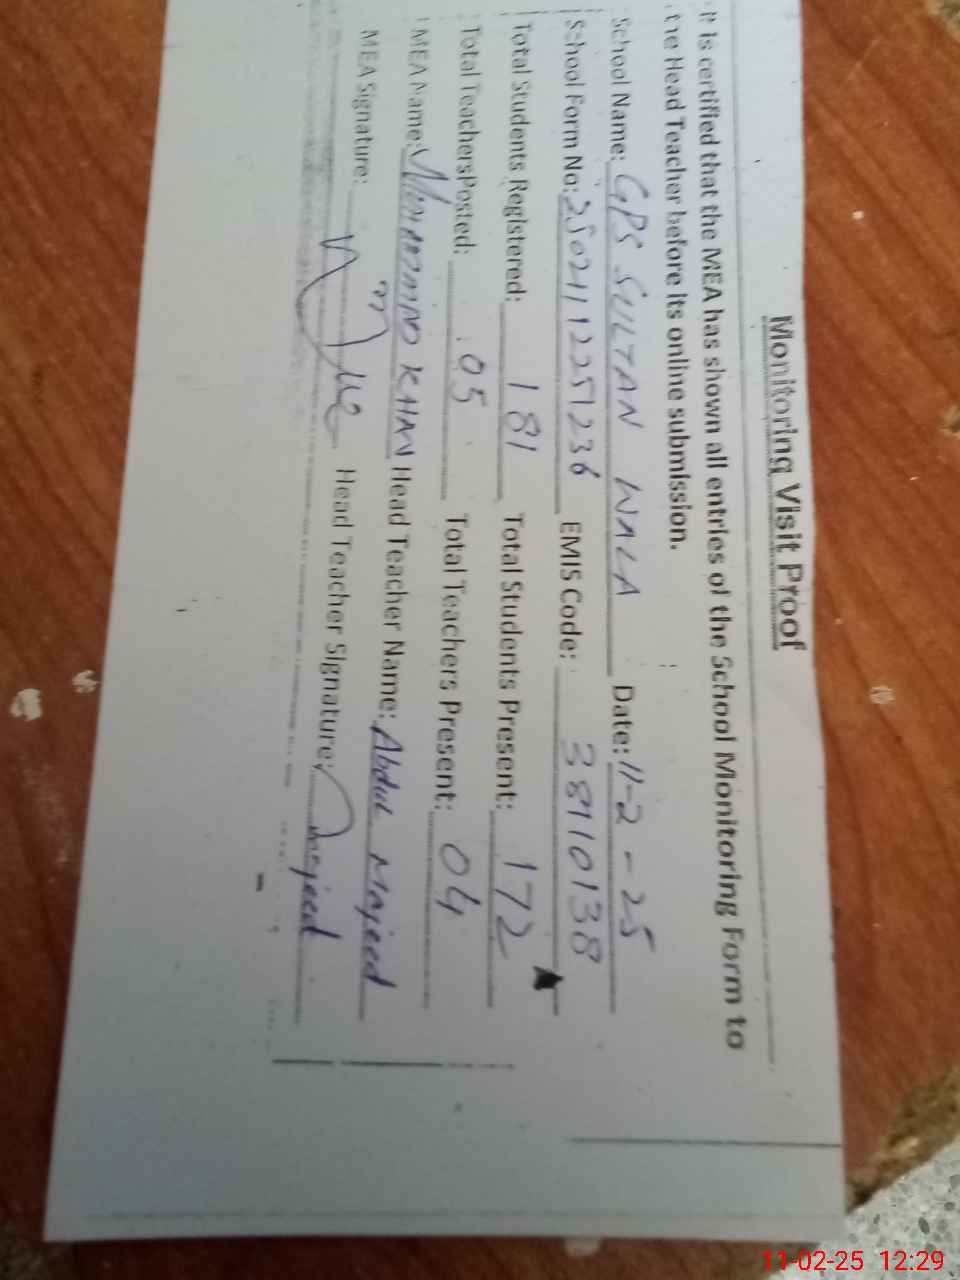 Monitoring Visit Proof
It is certified that the MEA has shown all entries of the School Monitoring Form to
the Head Teacher before its online submission.
School Name: GPS SULTAN WALA Date: 11-2-25
School Form No: 25021112257236 EMIS Code: 38910138
Total Students Registered: 181 Total Students Present: 172
Total TeachersPosted: 05 Total Teachers Present: 04
MEA Name: Muhammad KHAN Head Teacher Name: Abdul Majeed
MEA Signature: Head Teacher Signature: Majeed
11-02-25 12:29